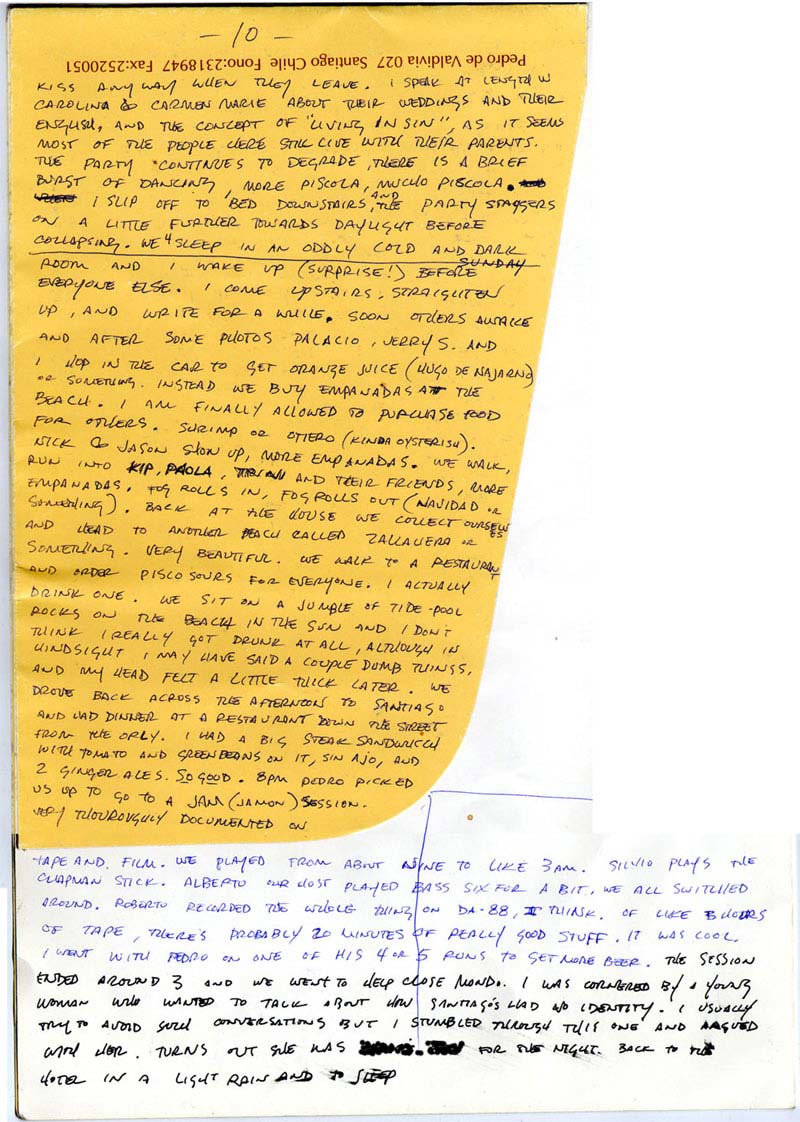 - 10 -
Pedro de Valdivia 027 Santiago Chile Fono:2318947 Fax:2520051
KISS ANYWAY WHEN THEY LEAVE. I SPEAK AT LENGTH W
CAROLINA & CARMEN MARIE ABOUT THEIR WEDDINGS AND THEIR
ENGLISH, AND THE CONCEPT OF "LIVING IN SIN", AS IT SEEMS
MOST OF THE PEOPLE HERE STILL LIVE WITH THEIR PARENTS.
THE PARTY CONTINUES TO DEGRADE, THERE IS A BRIEF
BURST OF DANCING, MORE PISCOLA, MUCHO PISCOLA.
I SLIP OFF TO BED DOWNSTAIRS, AND THE PARTY STAGGERS
ON A LITTLE FURTHER TOWARDS DAYLIGHT BEFORE
COLLAPSING. WE 4 SLEEP IN AN ODDLY COLD AND DARK
SUNDAY
ROOM AND I WAKE UP (SURPRISE!) BEFORE
EVERYONE ELSE. I COME UPSTAIRS, STRAIGHTEN
UP, AND WRITE FOR A WHILE. SOON OTHERS AWAKE
AND AFTER SOME PHOTOS PALACIO, JERRY S. AND
I HOP IN THE CAR TO GET ORANGE JUICE (HUGO DE NAJARNO)
OR SOMETHING. INSTEAD WE BUY EMPANADAS AT THE
BEACH. I AM FINALLY ALLOWED TO PURCHASE FOOD
FOR OTHERS. SHRIMP OR OTTERO (KINDA OYSTERISH).
NICK & JASON SHOW UP, MORE EMPANADAS. WE WALK,
RUN INTO KIP, PAOLA, AND THEIR FRIENDS, MORE
EMPANADAS. FOG ROLLS IN, FOG ROLLS OUT (NAVIDAD OR
SOMETHING). BACK AT THE HOUSE WE COLLECT OURSELVES
AND HEAD TO ANOTHER BEACH CALLED ZALLAUERA OR
SOMETHING. VERY BEAUTIFUL. WE WALK TO A RESTAURANT
AND ORDER PISCO SOURS FOR EVERYONE. I ACTUALLY
DRINK ONE. WE SIT ON A JUMBLE OF TIDE-POOL
ROCKS ON THE BEACH IN THE SUN AND I DON'T
THINK I REALLY GOT DRUNK AT ALL, ALTHOUGH IN
HINDSIGHT I MAY HAVE SAID A COUPLE DUMB THINGS,
AND MY HEAD FELT A LITTLE THICK LATER. WE
DROVE BACK ACROSS THE AFTERNOON TO SANTIAGO
AND HAD DINNER AT A RESTAURANT DOWN THE STREET
FROM THE ORLY. I HAD A BIG STEAK SANDWICH
WITH TOMATO AND GREENBEANS ON IT, SIN AJO, AND
2 GINGER ALES. SO GOOD. 8PM PEDRO PICKED
US UP TO GO TO A JAM (JAMON) SESSION.
VERY THOUROUGHLY DOCUMENTED ON
TAPE AND FILM. WE PLAYED FROM ABOUT NINE TO LIKE 3AM. SILVIO PLAYS THE
CHAPMAN STICK. ALBERTO OUR HOST PLAYED BASS SIX FOR A BIT, WE ALL SWITCHED
AROUND. ROBERTO RECORDED THE WHOLE THING ON DA-88, I THINK. OF LIKE 5 HOURS
OF TAPE, THERE'S PROBABLY 20 MINUTES OF REALLY GOOD STUFF. IT WAS COOL.
I WENT WITH PEDRO ON ONE OF HIS 4 OR 5 RUNS TO GET MORE BEER. THE SESSION
ENDED AROUND 3 AND WE WENT TO HELP CLOSE MONDO. I WAS CORNERED BY A YOUNG
WOMAN WHO WANTED TO TALK ABOUT HOW SANTIAGO'S HAD NO IDENTITY. I USUALLY
TRY TO AVOID SUCH CONVERSATIONS BUT I STUMBLED THROUGH THIS ONE AND ARGUED
WITH HER. TURNS OUT SHE WAS FOR THE NIGHT. BACK TO THE
HOTEL IN A LIGHT RAIN AND TO SLEEP